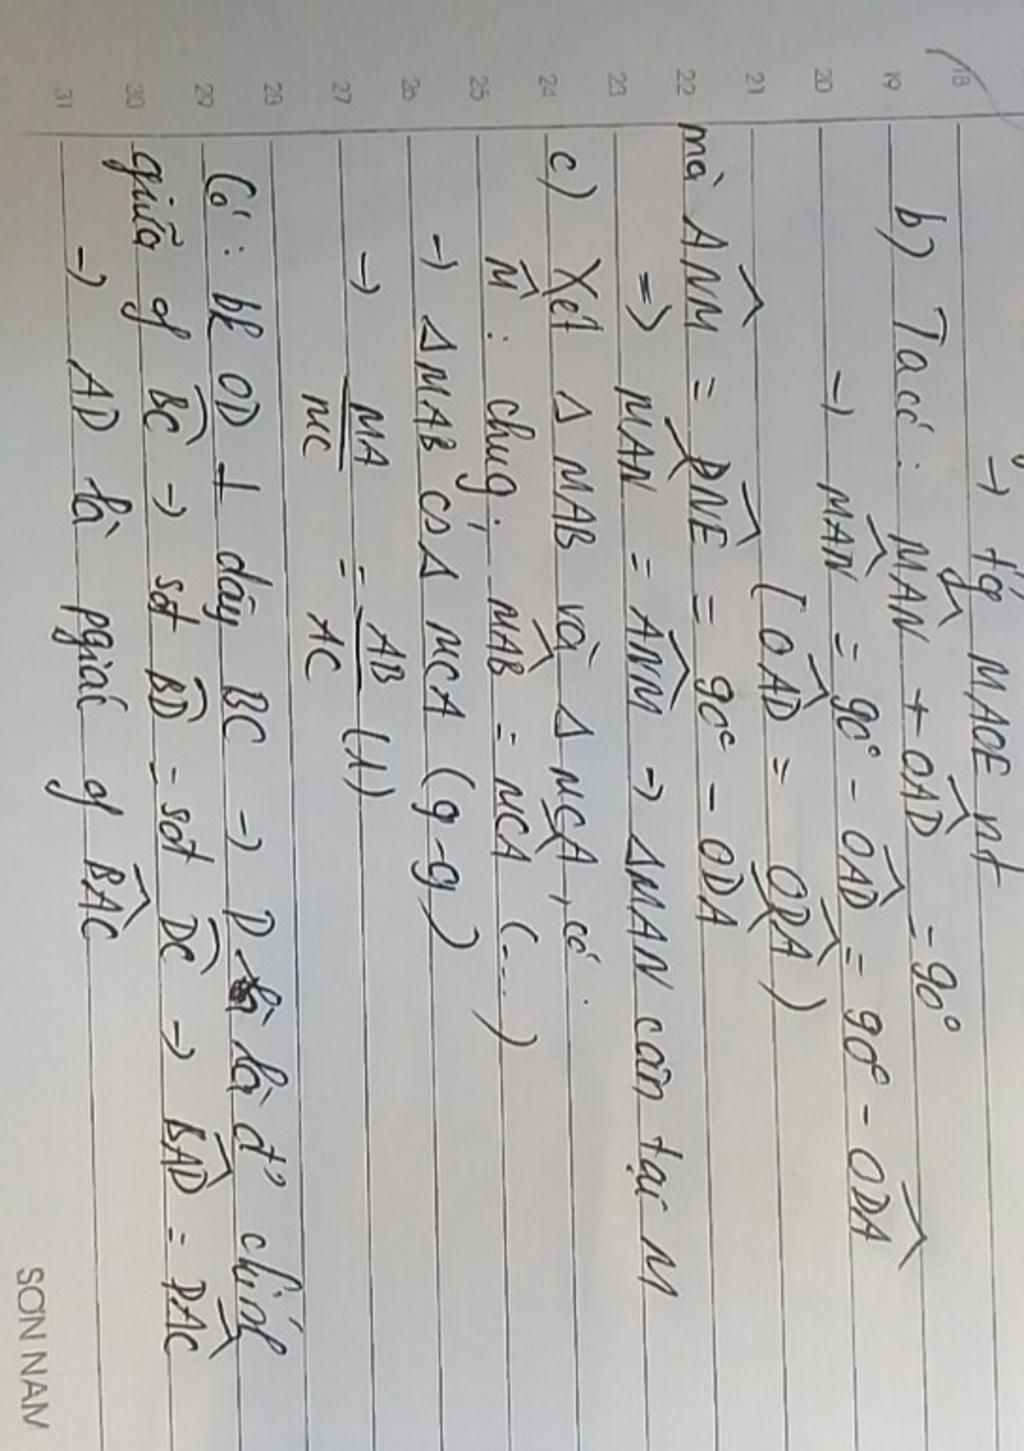 18
→ tg MAOE nt
19
b) Ta có: MAN + OAD = 90°
20
→ MAN = 90° - OAD = 90° - ODA
21
(OAD = ODA)
22
mà ANM = DNE = 90° - ODA
23
=> MAN = ANM → ΔMAN cân tại M
24
c) Xét Δ MAB và Δ MCA, có:
25
M: chug; MAB = MCA (...)
26
→ ΔMAB ∽ Δ MCA (g-g)
27
→ MA/MC = AB/AC (1)
28
29
Có: bk OD ⊥ dây BC → D là đ' chính
30
giữa of BC → sđ BD = sđ DC → BAD = DAC
31
→ AD là pgiác of BAC
SƠN NAM